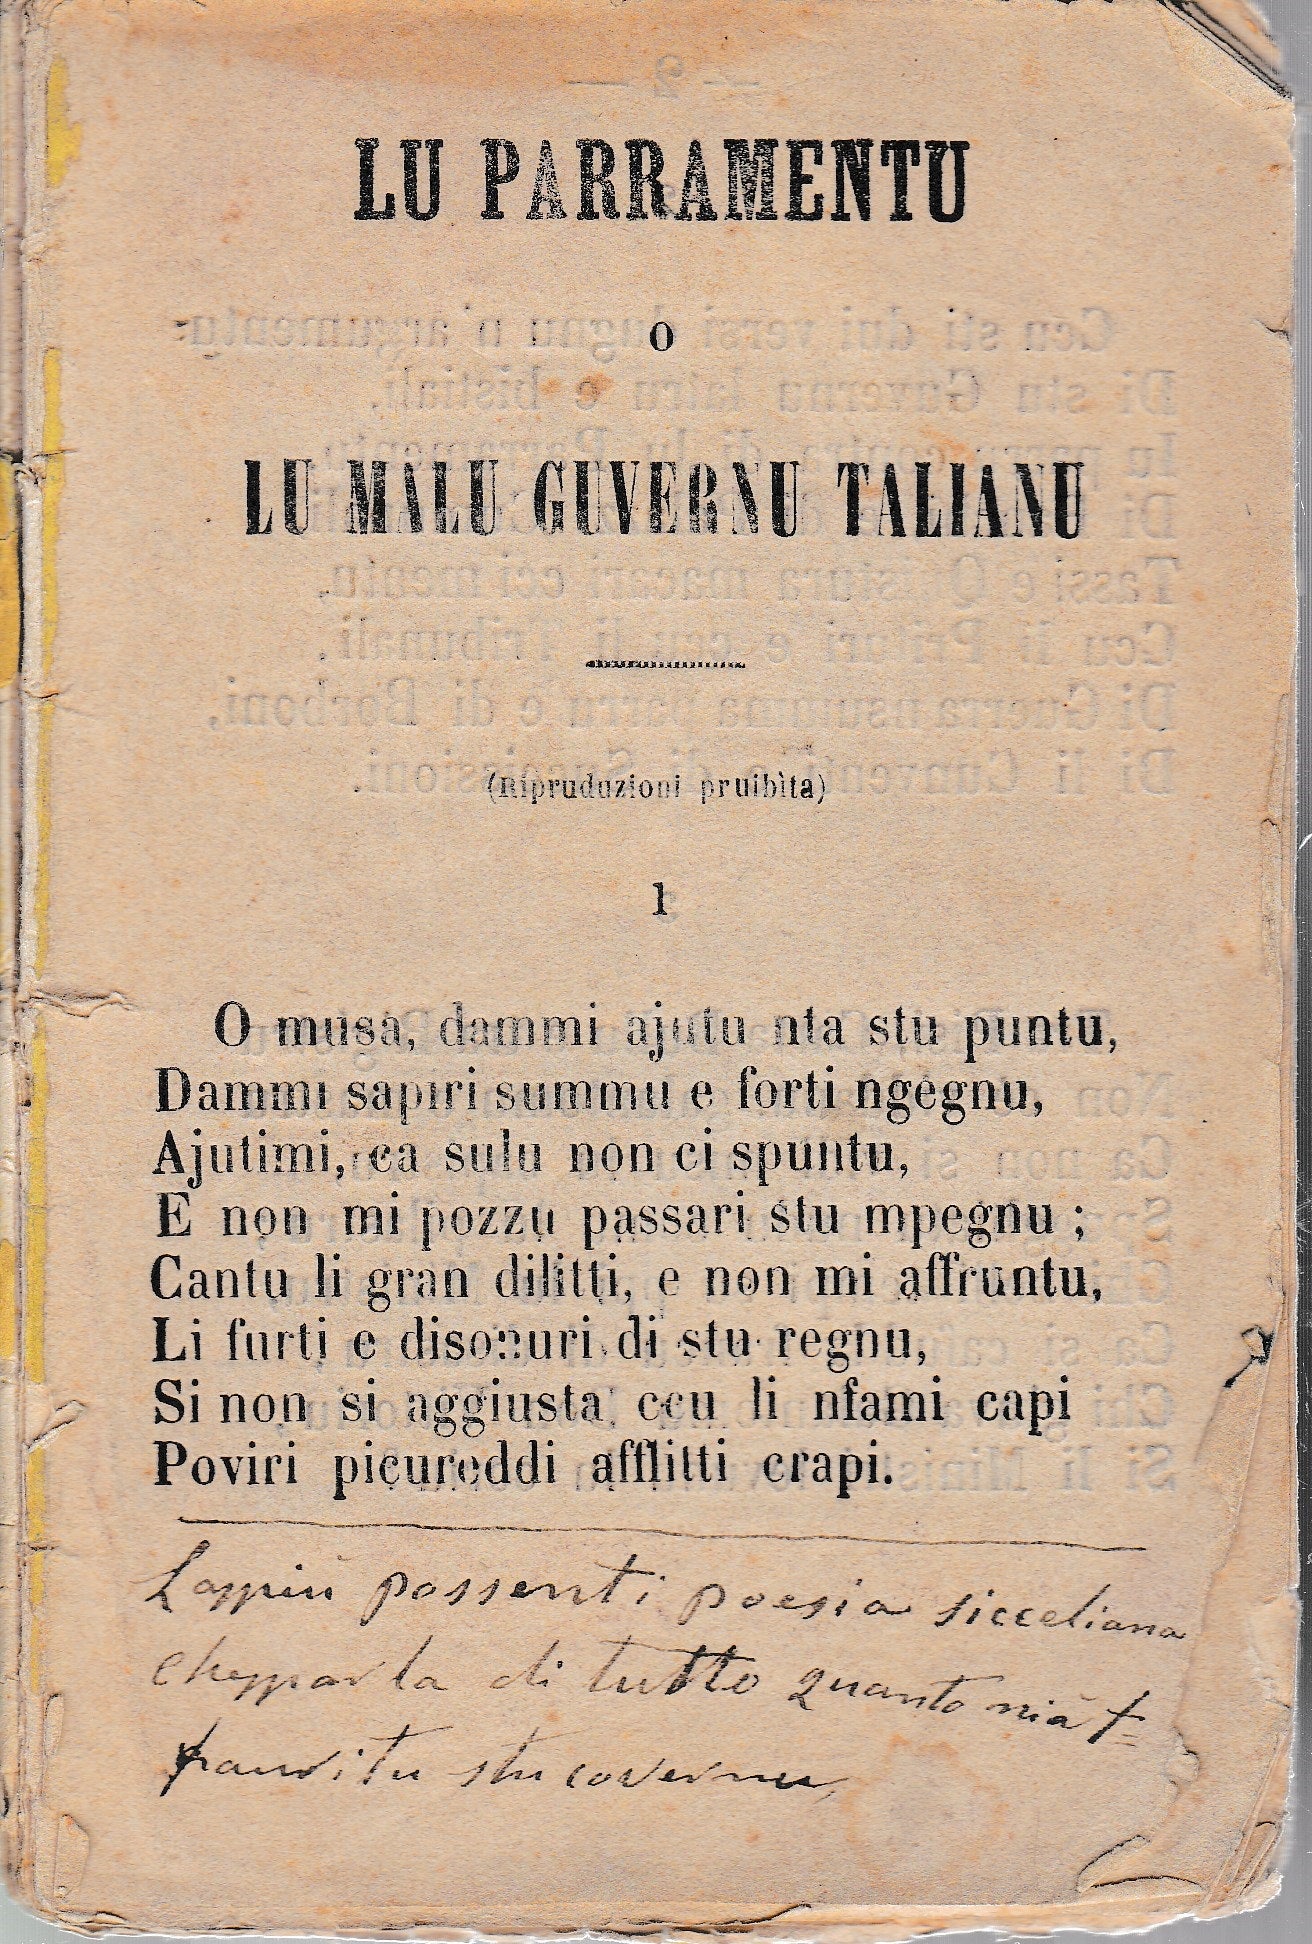 LU PARRAMENTU
o
LU MALU GUVERNU TALIANU
(Ripruduzioni pruibìta)
1
O musa, dammi ajutu nta stu puntu,
Dammi sapiri summu e forti ngegnu,
Ajutimi, ca sulu non ci spuntu,
E non mi pozzu passari stu mpegnu ;
Cantu li gran dilitti, e non mi affruntu,
Li furti e disonuri di stu regnu,
Si non si aggiusta ccu li nfami capi
Poviri picureddi afflitti crapi.
Lappiù possenti poesia sicceliana
chepparla di tutto quanto
stu covernu,